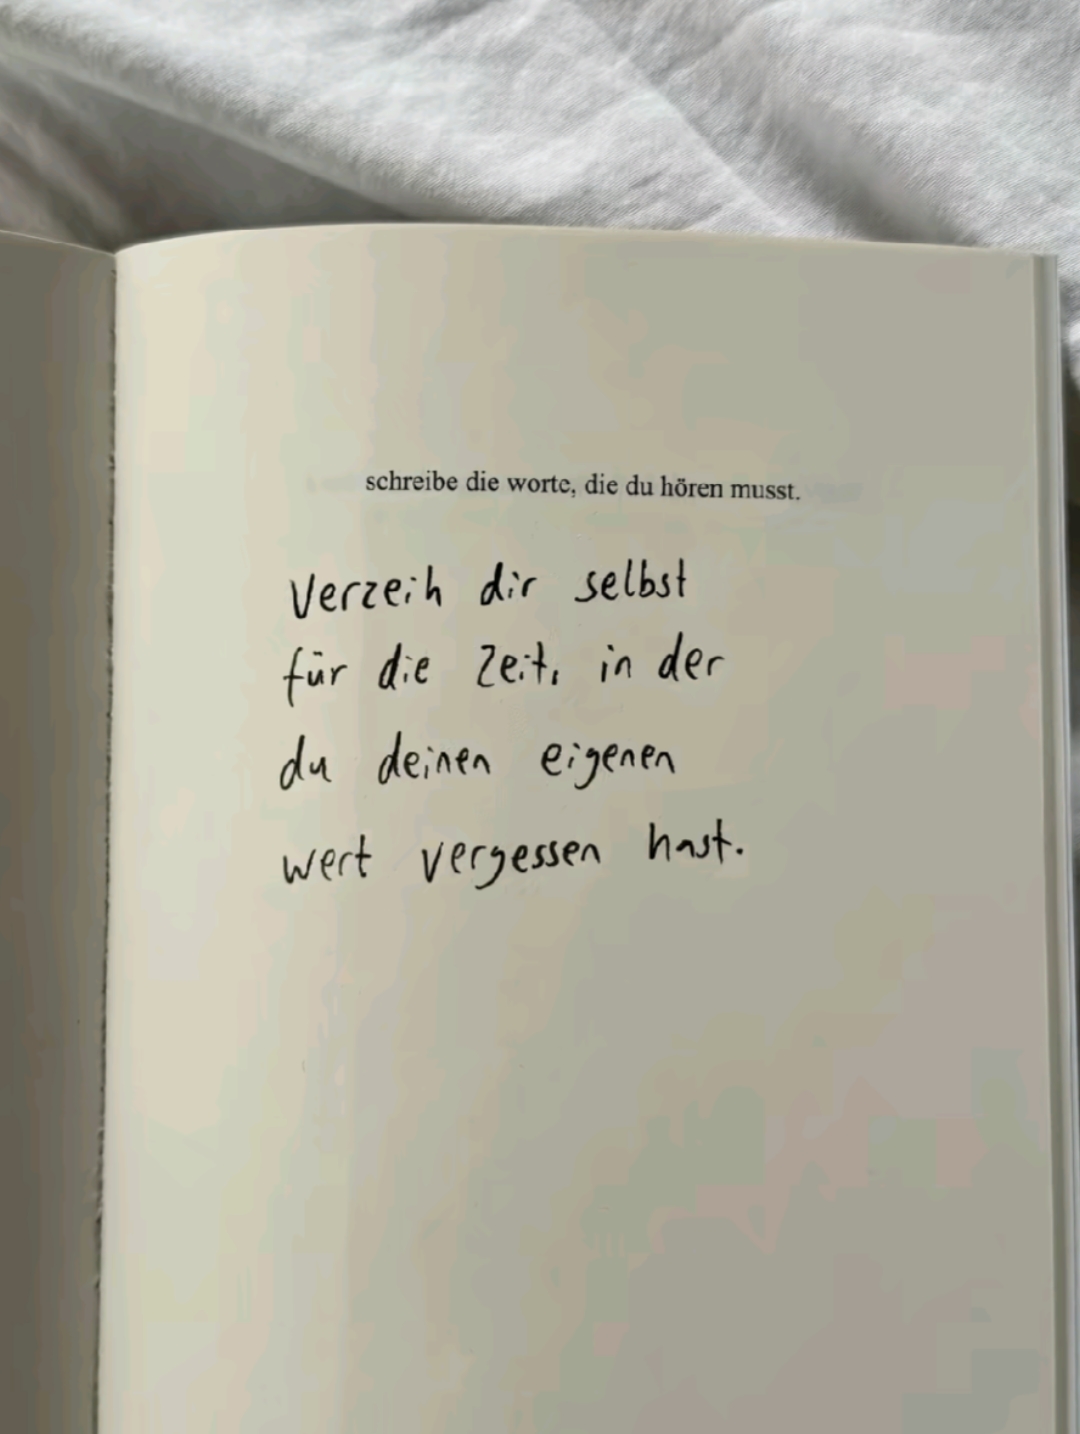 schreibe die worte, die du hören musst.
Verzeih dir selbst
für die Zeit, in der
du deinen eigenen
wert vergessen hast.